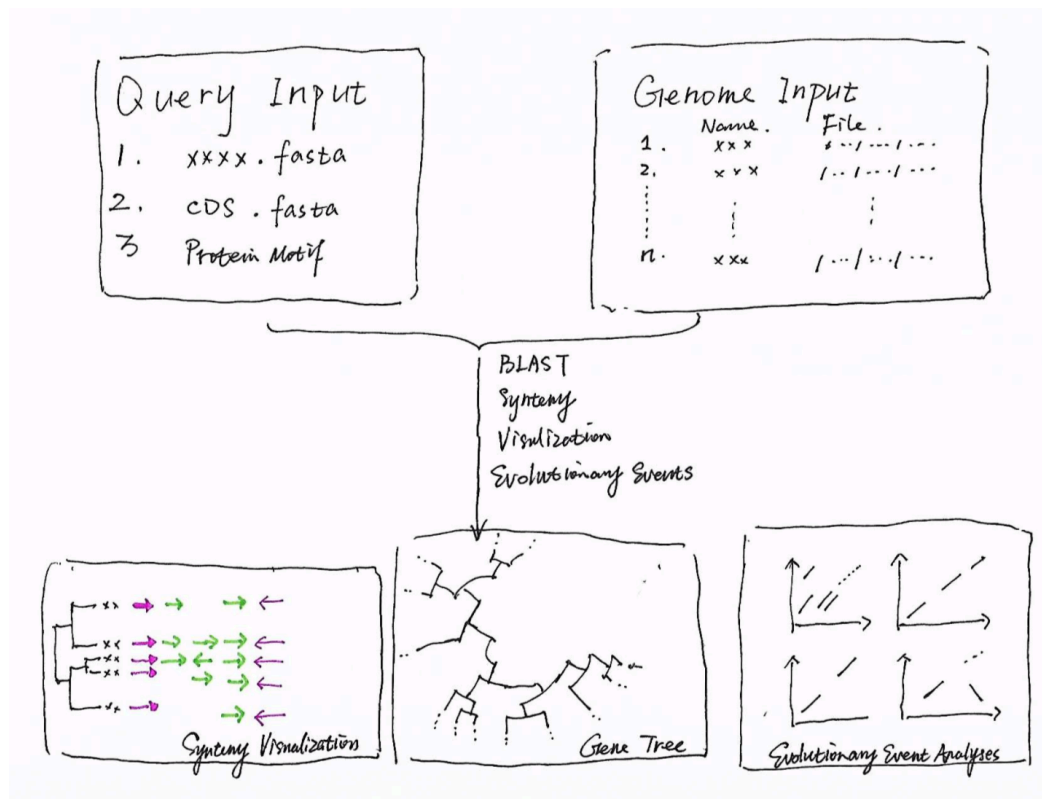 Query Input
1. xxxx.fasta
2. CDS.fasta
3 Protein Motif
Genome Input
Name. File.
1. xxx /.../.../...
2. xxx /.../.../...
n. xxx /.../.../...
BLAST
Synteny
Visulization
Evolutionary Events
xx
xx
xx
xx
xx
Synteny Visualization
Gene Tree
Evolutionary Event Analyses